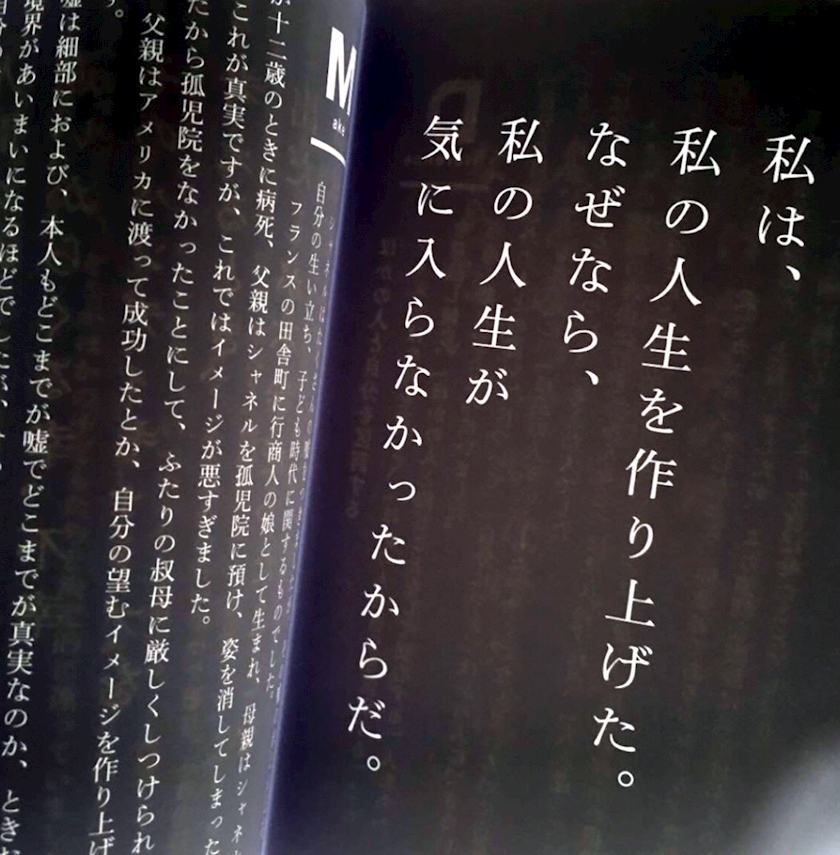 私は、
私の人生を作り上げた。
なぜなら、
私の人生が
気に入らなかったからだ。
M
ake
シャネルはたくさんの嘘を
自分の生い立ち、子ども時代に関するものでした。
フランスの田舎町に行商人の娘として生まれ、母親はシャネ
十二歳のときに病死、父親はシャネルを孤児院に預け、姿を消してしまった
これが真実ですが、これではイメージが悪すぎました。
だから孤児院をなかったことにして、ふたりの叔母に厳しくしつけられ
父親はアメリカに渡って成功したとか、自分の望むイメージを作り上げ
す。
嘘は細部におよび、本人もどこまでが嘘でどこまでが真実なのか、ときお
境界があいまいになるほどでしたが、